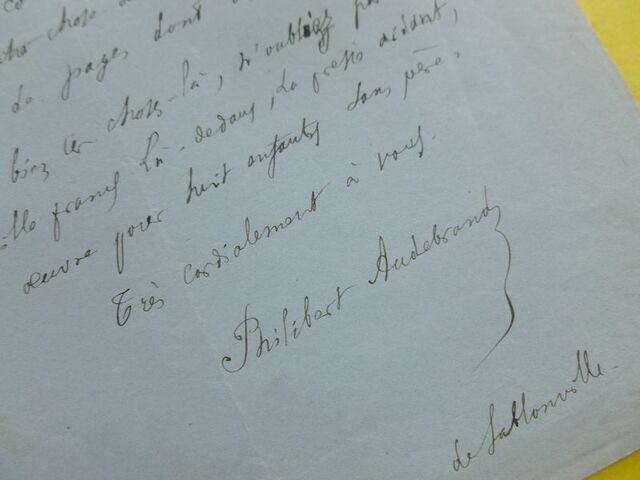 co
chose
de pages dont
bien ces choses-là, n'oubliez pas
mille francs là-dedans, la presse aidant,
œuvre pour huit enfants sans père.
Très cordialement à vous.
Philibert Audebrand
de Sablonville.